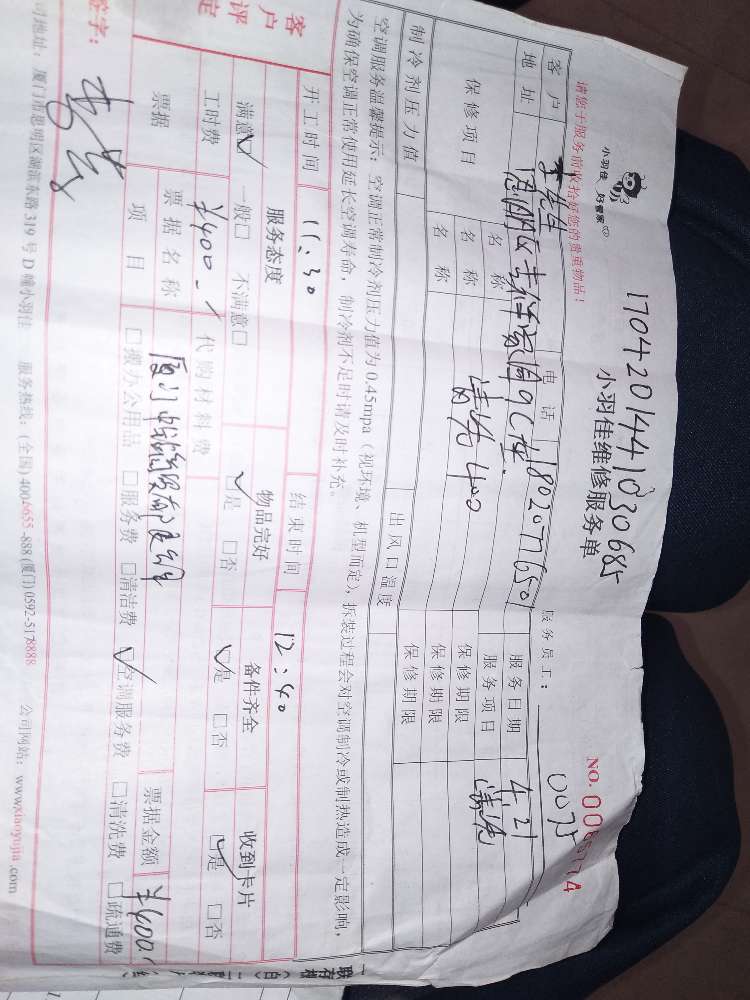 1704201441030685
小羽佳 好管家
小羽佳维修服务单
请您于服务前收拾好您的贵重物品!
服务员工: 0075
NO.
客户 电话 18020776501 服务日期 4.21
地址 服务项目 清洗
保修项目 名称 清洗 400 保修期限
名称 保修期限
名称 保修期限
制冷剂压力值 出风口温度
空调服务温馨提示:空调正常制冷剂压力值为0.45mpa(视环境、机型而定),拆装过程会对空调制冷或制热造成一定影响,
为确保空调正常使用延长空调寿命,制冷剂不足时请及时补充。
开工时间 11:30 结束时间 12:40
客户评定
服务态度 物品完好 备件齐全 收到卡片
满意☑ 一般□ 不满意□ ☑是 □否 ☑是 □否 ☑是 □否
工时费 ¥400.- 代购材料费
票据 票据名称 厦门 票据金额 ¥400.-
项目 □服务费 □清洁费 ☑空调服务费 □清洗费 □疏通费
签字:
司地址:厦门市思明区湖滨东路319号D幢小羽佳 服务热线:(全国)4006655-888(厦门)0592-5178888 公司网站:www.xiaoyujia.com